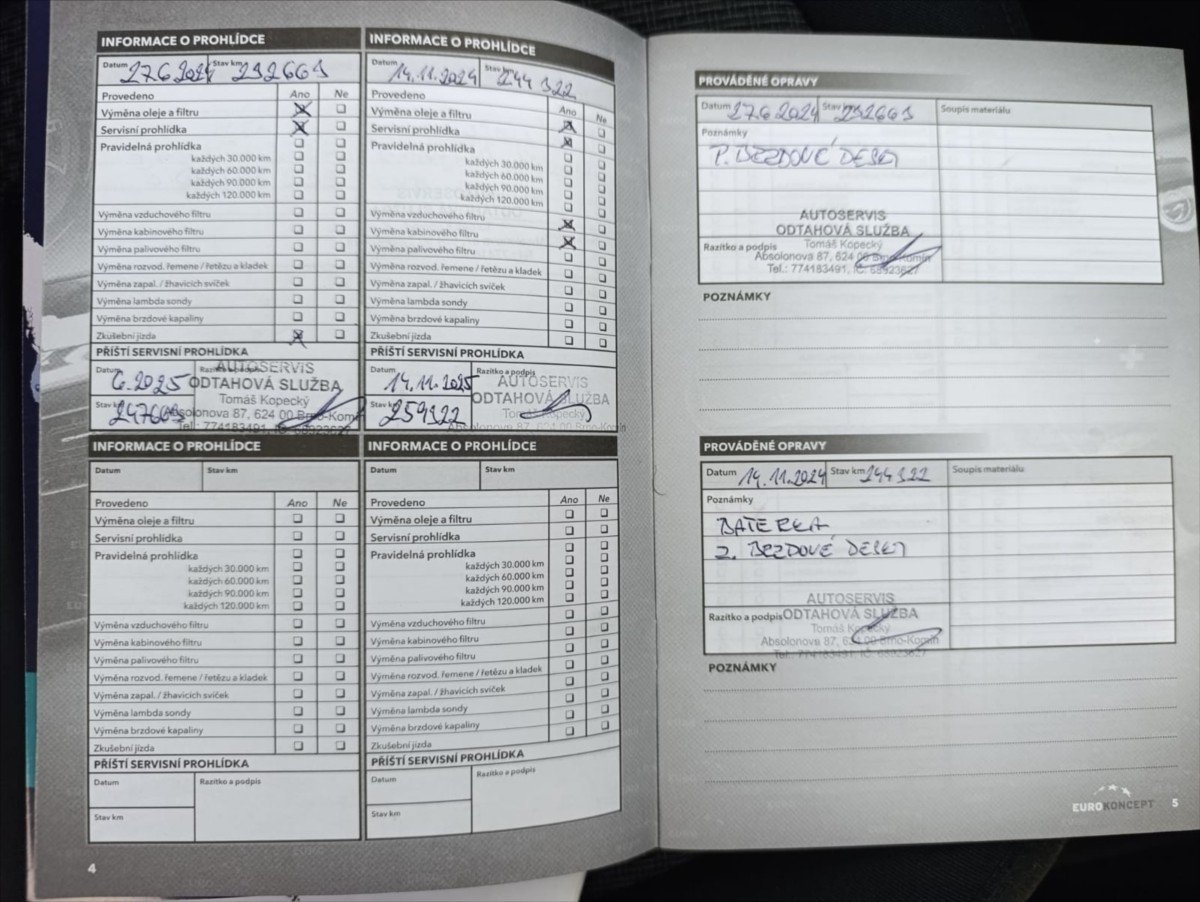 INFORMACE O PROHLÍDCE
Datum 27.6 2024 Stav km 232603
Provedeno Ano Ne
Výměna oleje a filtru
Servisní prohlídka
Pravidelná prohlídka
každých 30.000 km
každých 60.000 km
každých 90.000 km
každých 120.000 km
Výměna vzduchového filtru
Výměna kabinového filtru
Výměna palivového filtru
Výměna rozvod. řemene / řetězu a kladek
Výměna zapal. / žhavicích svíček
Výměna lambda sondy
Výměna brzdové kapaliny
Zkušební jízda
PŘÍŠTÍ SERVISNÍ PROHLÍDKA
Datum 6.2025 Razítko a podpis
Stav km 247603
AUTOSERVIS
ODTAHOVÁ SLUŽBA
Tomáš Kopecký
Absolonova 87, 624 00 Brno-Komín
Tel.: 774183491, IČ: 68923627
INFORMACE O PROHLÍDCE
Datum 14.11.2024 Stav km 244 322
Provedeno Ano Ne
Výměna oleje a filtru
Servisní prohlídka
Pravidelná prohlídka
každých 30.000 km
každých 60.000 km
každých 90.000 km
každých 120.000 km
Výměna vzduchového filtru
Výměna kabinového filtru
Výměna palivového filtru
Výměna rozvod. řemene / řetězu a kladek
Výměna zapal. / žhavicích svíček
Výměna lambda sondy
Výměna brzdové kapaliny
Zkušební jízda
PŘÍŠTÍ SERVISNÍ PROHLÍDKA
Datum 14.11.2025 Razítko a podpis
Stav km 259322
AUTOSERVIS
ODTAHOVÁ SLUŽBA
Tomáš Kopecký
Absolonova 87, 624 00 Brno-Komín
INFORMACE O PROHLÍDCE
Datum Stav km
Provedeno Ano Ne
Výměna oleje a filtru
Servisní prohlídka
Pravidelná prohlídka
každých 30.000 km
každých 60.000 km
každých 90.000 km
každých 120.000 km
Výměna vzduchového filtru
Výměna kabinového filtru
Výměna palivového filtru
Výměna rozvod. řemene / řetězu a kladek
Výměna zapal. / žhavicích svíček
Výměna lambda sondy
Výměna brzdové kapaliny
Zkušební jízda
PŘÍŠTÍ SERVISNÍ PROHLÍDKA
Datum Razítko a podpis
Stav km
INFORMACE O PROHLÍDCE
Datum Stav km
Provedeno Ano Ne
Výměna oleje a filtru
Servisní prohlídka
Pravidelná prohlídka
každých 30.000 km
každých 60.000 km
každých 90.000 km
každých 120.000 km
Výměna vzduchového filtru
Výměna kabinového filtru
Výměna palivového filtru
Výměna rozvod. řemene / řetězu a kladek
Výměna zapal. / žhavicích svíček
Výměna lambda sondy
Výměna brzdové kapaliny
Zkušební jízda
PŘÍŠTÍ SERVISNÍ PROHLÍDKA
Datum Razítko a podpis
Stav km
4
PROVÁDĚNÉ OPRAVY
Datum 27.6 2024 Stav km 232603 Soupis materiálu
Poznámky
P. BRZDOVÉ DESKY
AUTOSERVIS
ODTAHOVÁ SLUŽBA
Razítko a podpis Tomáš Kopecký
Absolonova 87, 624 00 Brno-Komín
Tel.: 774183491, IČ: 68923627
POZNÁMKY
PROVÁDĚNÉ OPRAVY
Datum 14.11.2024 Stav km 244 322 Soupis materiálu
Poznámky
BATERKA
Z. BRZDOVÉ DESKY
AUTOSERVIS
Razítko a podpis ODTAHOVÁ SLUŽBA
Tomáš Kopecký
Absolonova 87, 624 00 Brno-Komín
Tel.: 774183491, IČ: 68923627
POZNÁMKY
EUROKONCEPT 5